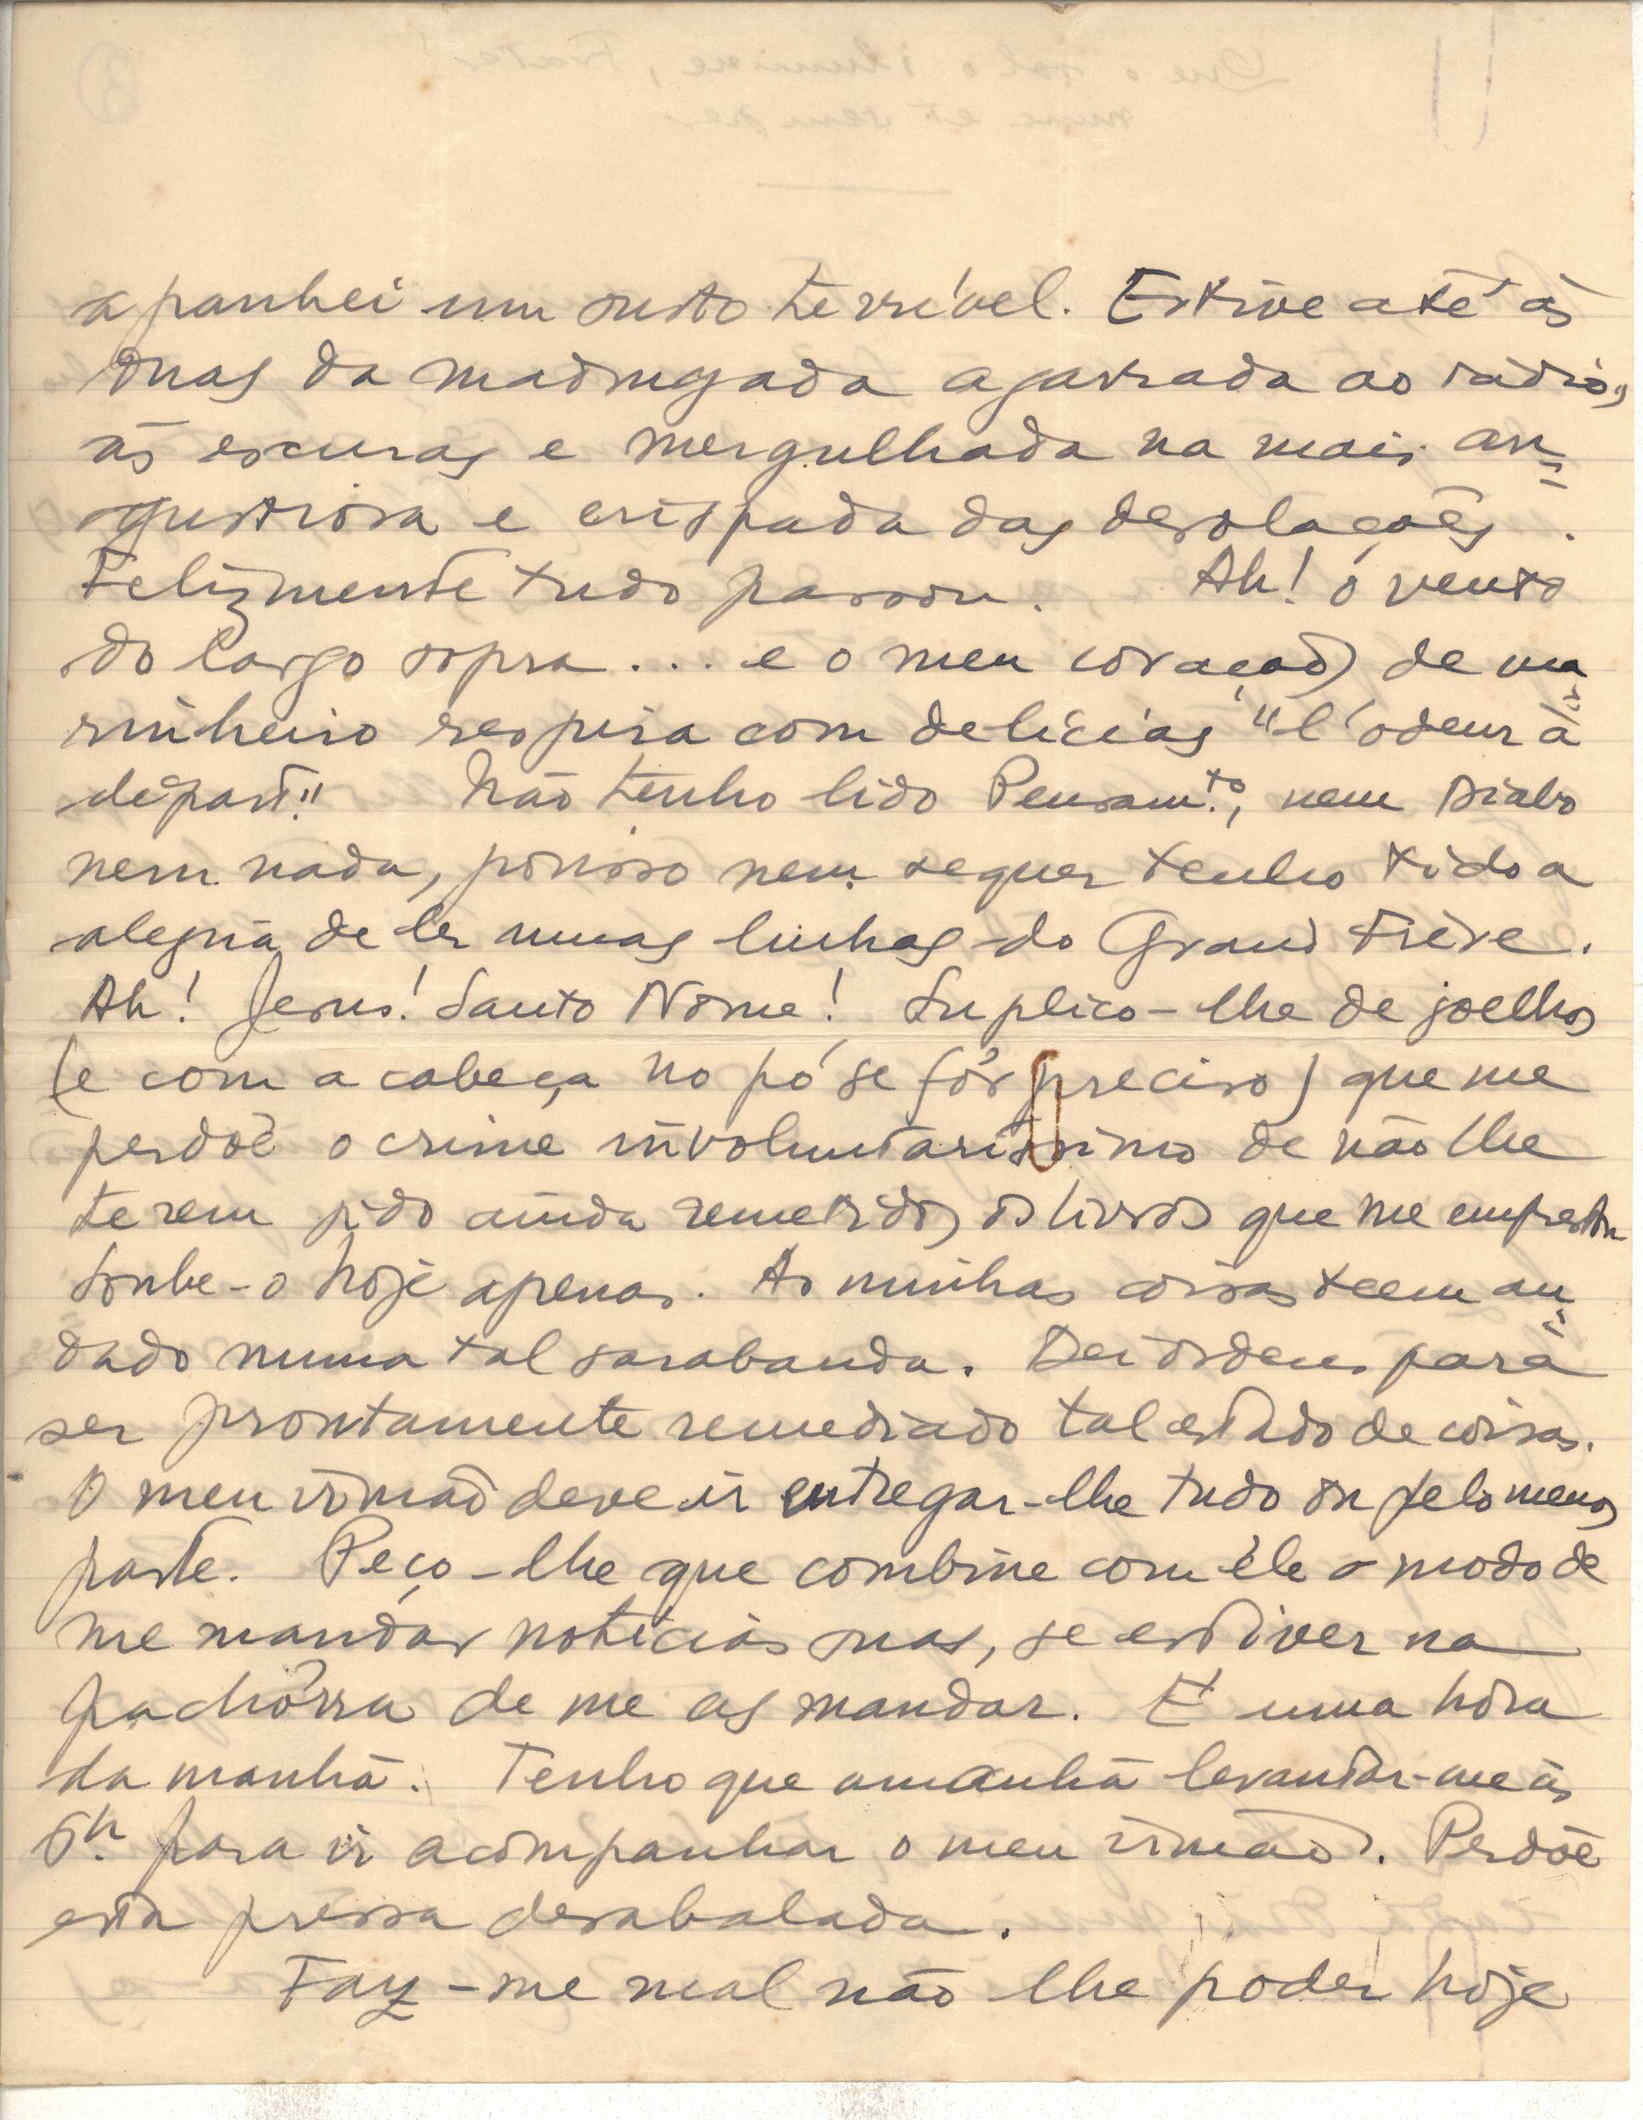 apanhei um susto terrível. Estive até ás
duas da madrugada agarrada ao rádio,
ás escuras e mergulhada na mais an=
gustiosa e crispada das desolações.
Felizmente tudo passou. Ah! o vento
do largo sopra... e o meu coração de ma=
rinheiro respira com delícias "l'odeur à
départ". Não tenho lido Pensam.to, nem Diabo
nem nada, porisso nem sequer tenho tido a
alegria de ler umas linhas do Grand Frère.
Ah! Jesus! Santo Nome! Suplico-lhe de joelhos
(e com a cabeça no pó se fôr preciso) que me
perdoê o crime involuntaríssimo de não lhe
terem sido ainda remetidos os livros que me emprestou
Soube-o hoje apenas. As minhas coisas teem an=
dado numa tal sarabanda. Dei ordens para
ser prontamente remediado tal estado de coisas.
O meu irmão deve ir entregar-lhe tudo ou pelo menos
parte. Peço-lhe que combine com êle o modo de
me mandar notícias suas, se estiver na
pachôrra de me as mandar. É uma hora
da manhã. Tenho que amanhã levantar-me ás
6h. para ir acompanhar o meu irmão. Perdôe
esta pressa desabalada.
Faz-me mal não lhe poder hoje